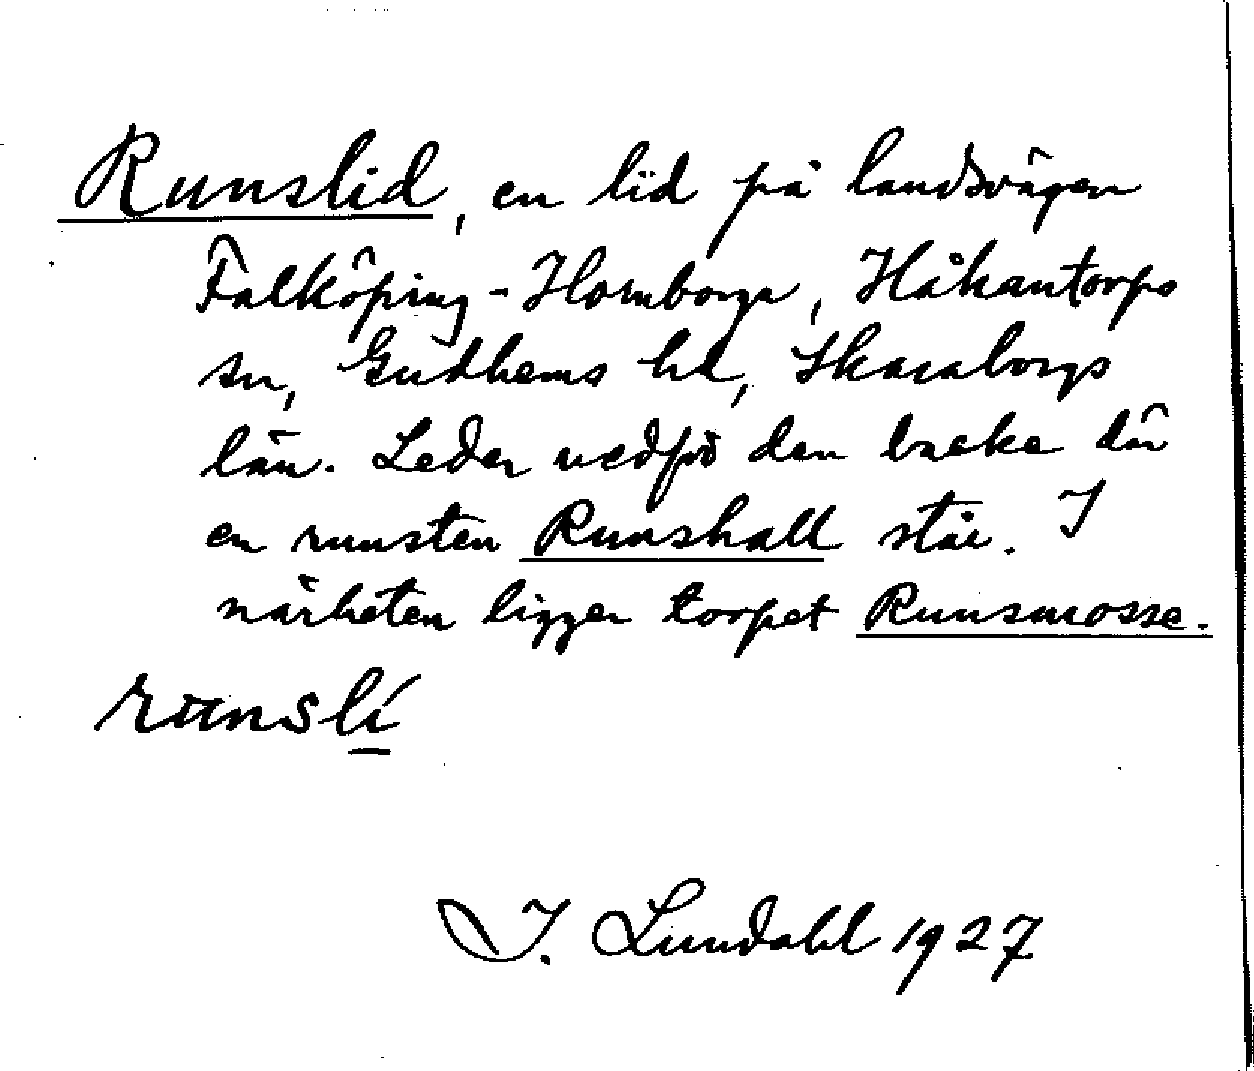 Runslid, en lid på landsvägen
Falköping - Hornborga, Håkantorps
sn, Gudhems hd, Skaraborgs
län. Leder uppför den backe där
en runsten Runshall står. I
närheten ligger torpet Runsmosse.
runslí
I. Lundahl 1927